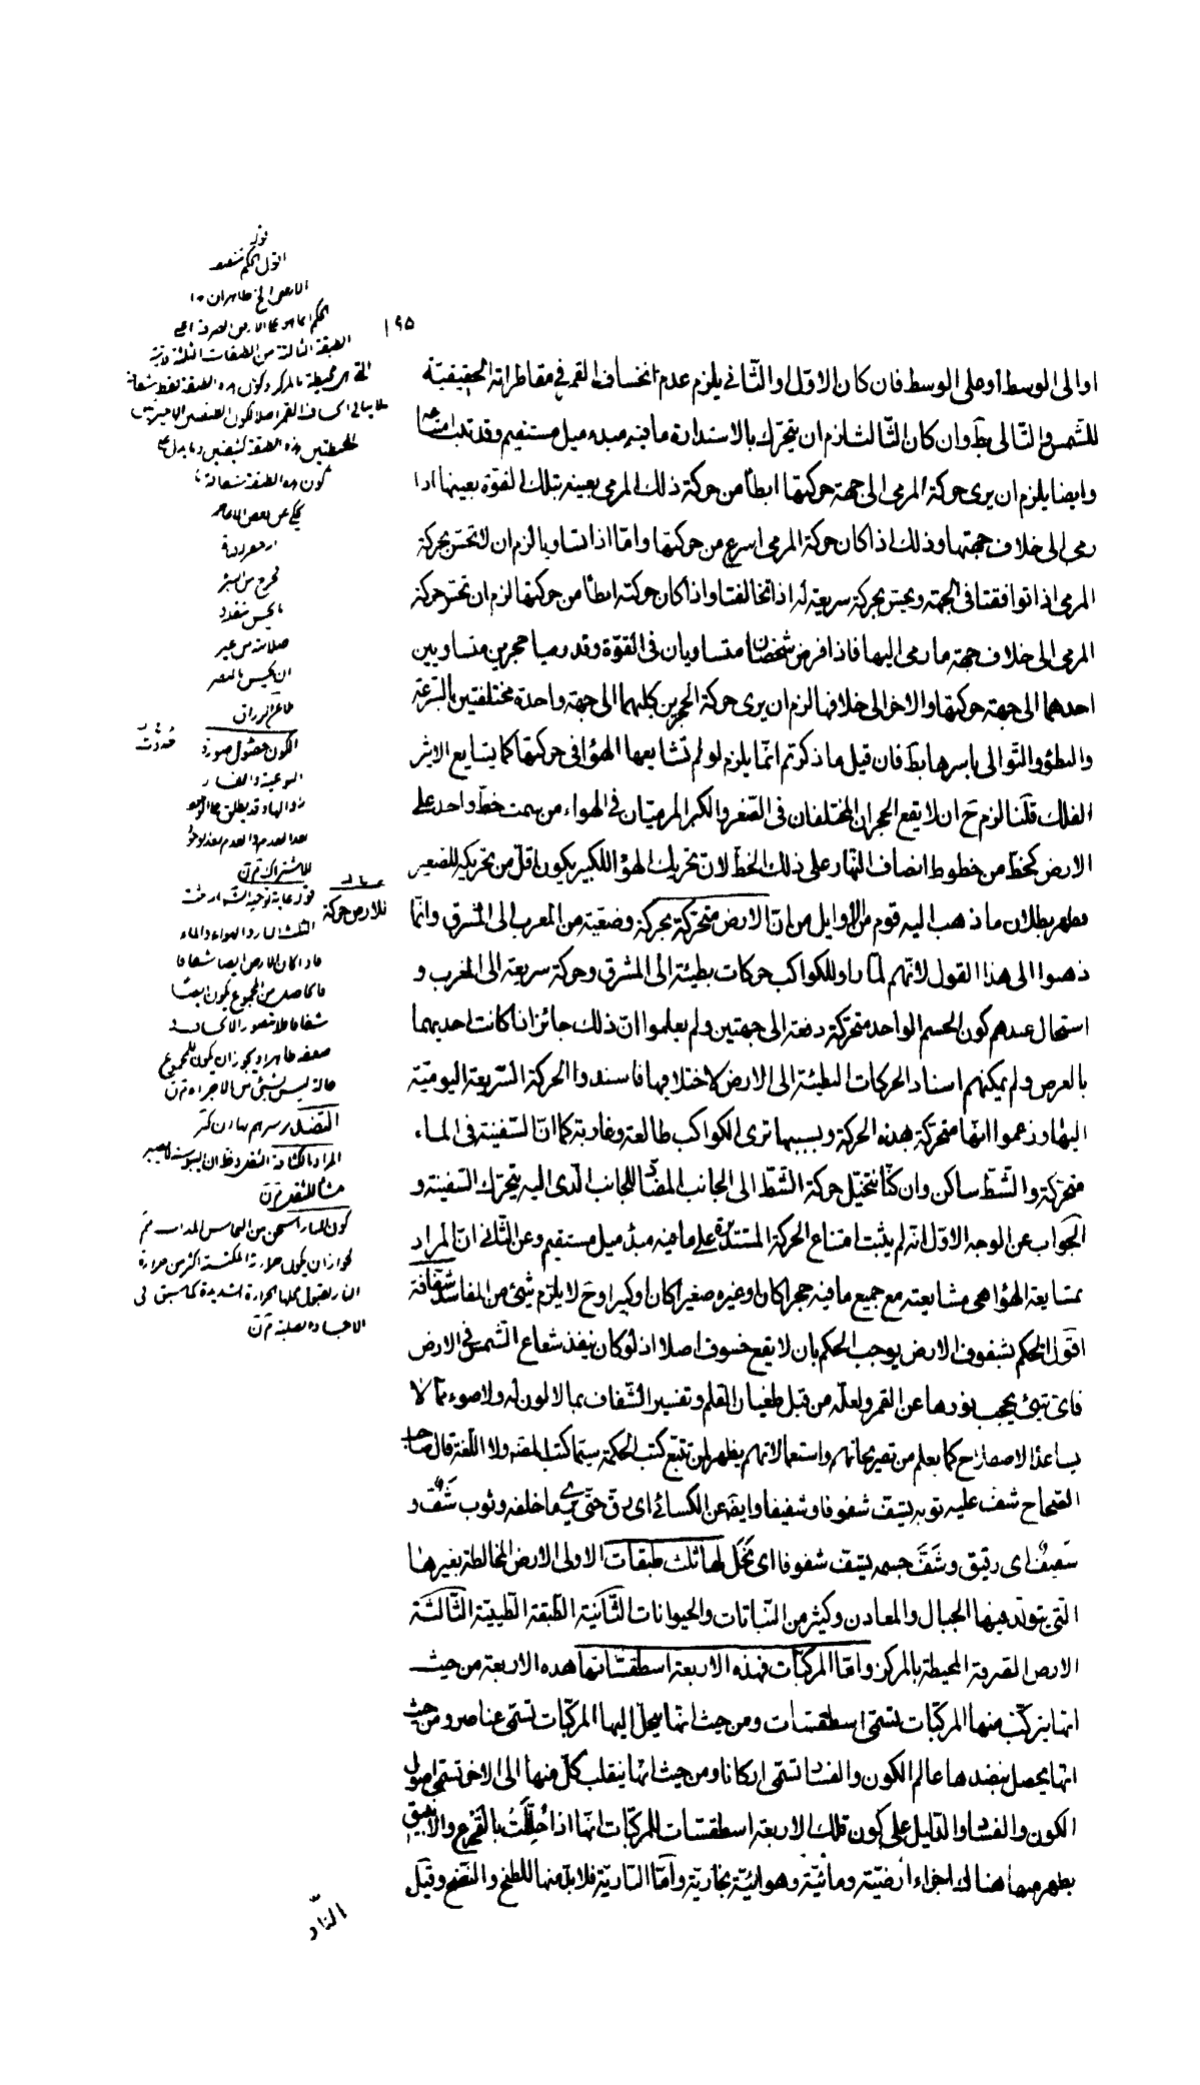 ١٩٥
او الى الوسط او على الوسط فان كان الاول او الثانى يلزم عدم انخساف القمر فى مقاطراته الحقيقية
للشمس والتالى بط وان كان الثالث لزم ان يتحرك بالاستدارة ما فيه مبدء ميل مستقيم وقد ثبت امتناعه
وايضا يلزم ان يرى حركة المرمى الى جهة حركتها ابطأ من حركة ذلك المرمى بعينه بتلك القوة بعينها اذا
رمى الى خلاف جهتها وذلك اذا كان حركة المرمى اسرع من حركتها واما اذا تساويا لزم ان لا تحس بحركة
المرمى اذا توافقتا فى الجهة ويحس بحركة سريعة له اذا تخالفتا واذا كان حركته ابطأ من حركتها لزم ان تحس حركة
المرمى الى خلاف جهة ما رمى اليها فاذا فرض شخصان متساويان فى القوة وقد رميا حجرين متساويين
احدهما الى جهة حركتها والاخر الى خلافها لزم ان يرى حركة الحجرين كليهما الى جهة واحدة مختلفتين بالسرعة
والبطؤ والتوالى باسرها بط فان قيل ما ذكرتم انما يلزم لو لم تشايعها الهؤا فى حركتها كما يشايع الاثير
الفلك قلنا لزم ح ان لا يقع الحجران المختلفان فى الصغر والكبر المرميان فى الهواء من سمت خط واحد على
الارض كخط من خطوط انصاف النهار على ذلك الخط لان تحريك الهؤ اللكبير يكون اقل من تحريكه للصغير
فظهر بطلان ما ذهب اليه قوم من الاوايل من ان الارض متحركة بحركة وضعية من المغرب الى المشرق وانما
ذهبوا الى هذا القول لانهم لما راو للكواكب حركات بطيئة الى المشرق وحركة سريعة الى المغرب و
استحال عندهم كون الجسم الواحد متحركة دفعة الى جهتين ولم يعلموا ان ذلك جائز اذا كانت احديهما
بالعرض ولم يمكنهم اسناد الحركات البطيئة الى الارض لاختلافها فاسندوا الحركة السريعة اليومية
اليها وزعموا انها متحركة بهذه الحركة وبسببها ترى الكواكب طالعة وغاربة كما ان السفينة فى الماء
متحركة والشط ساكن وان كنا نتخيل حركة الشط الى الجانب المضاد للجانب الذى اليه يتحرك السفينة و
الجواب عن الوجه الاول انه لم يثبت امتناع الحركة المستديرة على ما فيه مبدأ ميل مستقيم وعن الثانى ان المراد
بمشايعة الهؤا هى مشايعته مع جميع ما فيه حجرا كان او غيره صغيرا كان او كبيرا وح لا يلزم شئ من المفاسد شفافة
اقول الحكم بشفوف الارض يوجب الحكم بان لا يقع خسوف اصلا اذ لو كان ينفذ شعاع الشمس فى الارض
فاى شئ يحجب نورها عن القمر ولعله من قبل طغيان القلم وتفسير الشفاف بما لا لون له ولا ضوء مما لا
يساعد الاصطلاح كما يعلم من تصريحاتهم واستعمالاتهم يظهر لمن تتبع كتب الحكمة سيما كتب المصنف ولا اللغة قال صاحب
الصحاح شف عليه ثوبه يشف شفوفا وشفيفا وايضا عن الكسائى اى رق حتى يرى ما خلفه وثوب شف و
شفيف اى رقيق وشف جسمه يشف شفوفا اى نحل لها ثلث طبقات الاولى الارض المخالطة بغيرها
التى يتولد فيها الجبال والمعادن وكثير من النباتات والحيوانات الثانية الطبقة الطينية الثالثة
الارض الصرفة المحيطة بالمركز واما المركبات فهذه الاربعة اسطقساتها هذه الاربعة من حيث
انها يتركب منها المركبات تسمى اسطقسات ومن حيث انها ينحل اليها المركبات تسمى عناصر ومن حيث
انها يحصل بنضدها عالم الكون والفساد تسمى اركانا ومن حيث انها ينقلب كل منها الى الاخر تسمى اصول
الكون والفساد والدليل على كون تلك الاربعة اسطقسات للمركبات انها اذا حللت بالقرع والانبيق
يظهر منها هناك اجزاء ارضية ومائية وهوائية بخارية واما النارية فلا بد منها للطبخ والنضج وقيل
النار
الحكم انما هو على الارض الصرفة اعنى
الطبقة الثالثة من الطبقات الثلثة لاتية
التى هى محيطة بالمركز وكون هذه الطبقة فقط شفافة
لا ينافى انخساف القمر اصلا لكون الطبقتين الاخيرتين
المحيطتين بهذه الطبقة كثيفتين
كون هذه الطبقة شفافة
الكون حصول صورة
النوعية والفساد
زوالها وقد يطلق على الوجود
بعد العدم والعدم بعد الوجود
للارض حركة
الثلث البارد الهواء والماء
فاذا كان الارض ايضا شفافا
فالحاصل من المجموع يكون ايضا
شفافا فلا يتصور الانخساف
ضعفه ظاهر اذ يجوز ان يكون للمجموع
حالة ليس لشئ من الاجزاء
لجواز ان يكون حرارة المكتسبة اكثر من حرارة
النار لقبول محلها الحرارة الشديدة كما سبق فى
الاجساد الصلبة